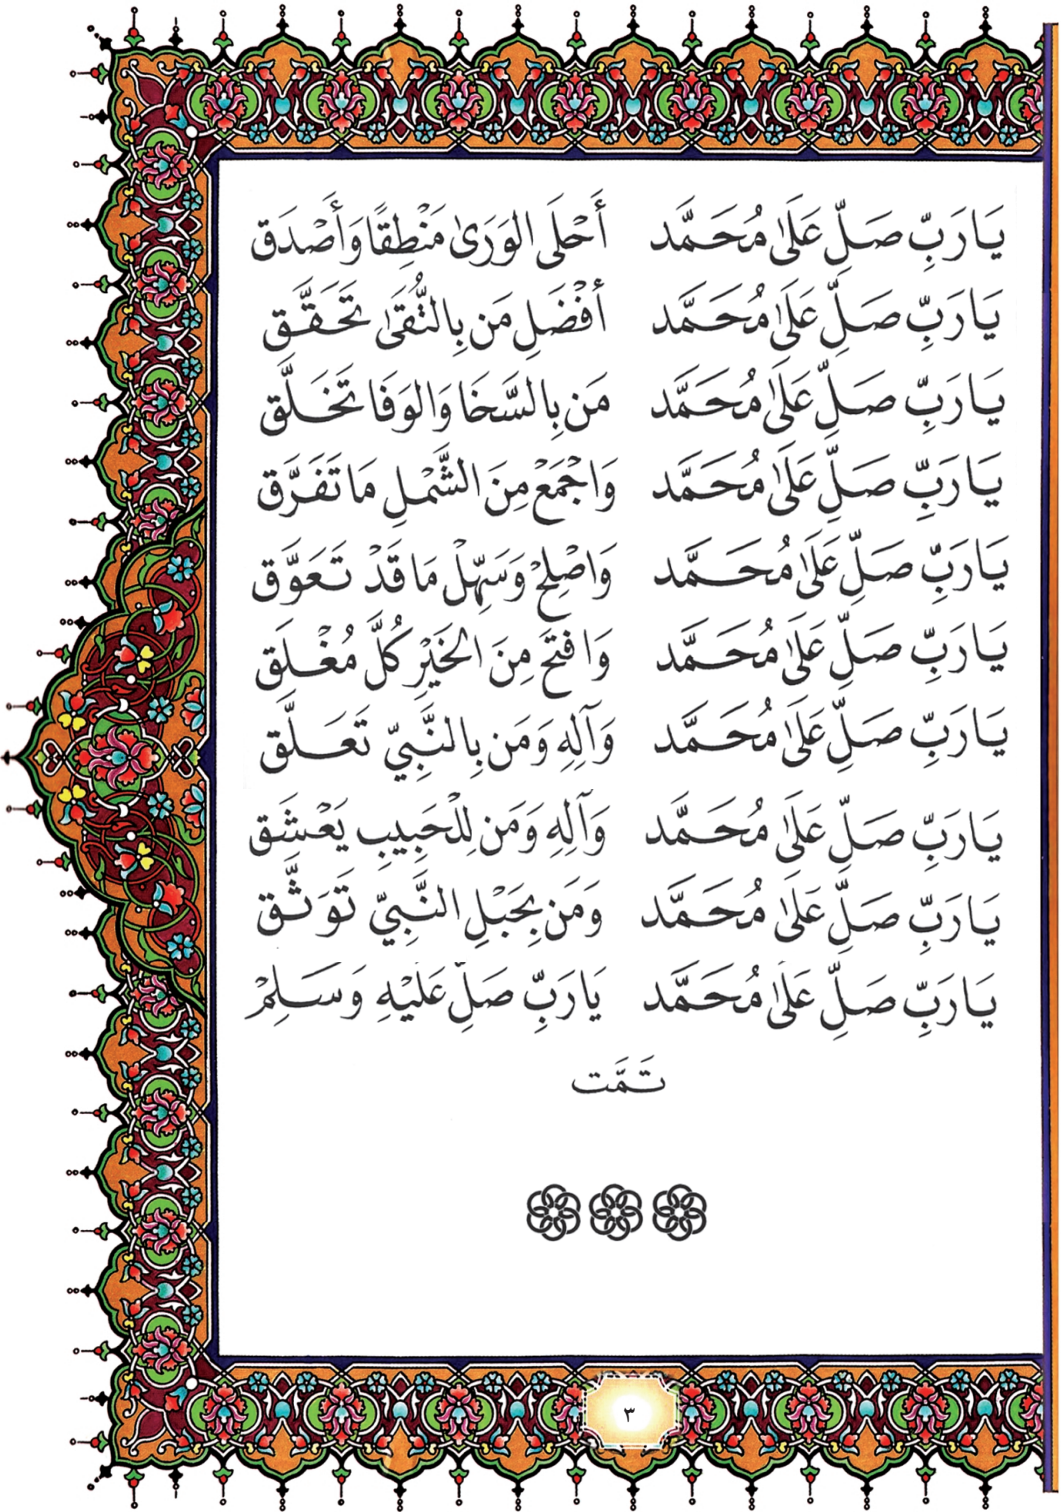 يَارَبِّ صَلِّ عَلَىٰ مُحَمَّد أَحْلَى الوَرَىٰ مَنْطِقًا وَأَصْدَق
يَارَبِّ صَلِّ عَلَىٰ مُحَمَّد أَفْضَلِ مَن بِالتُّقَىٰ تَحَقَّق
يَارَبِّ صَلِّ عَلَىٰ مُحَمَّد مَن بِالسَّخَا وَالوَفَا تَخَلَّق
يَارَبِّ صَلِّ عَلَىٰ مُحَمَّد وَاجْمَعْ مِنَ الشَّمْلِ مَا تَفَرَّق
يَارَبِّ صَلِّ عَلَىٰ مُحَمَّد وَاصْلِحْ وَسَهِّلْ مَا قَدْ تَعَوَّق
يَارَبِّ صَلِّ عَلَىٰ مُحَمَّد وَافْتَحْ مِنَ الخَيْرِ كُلَّ مُغْلَق
يَارَبِّ صَلِّ عَلَىٰ مُحَمَّد وَآلِهِ وَمَن بِالنَّبِيِّ تَعَلَّق
يَارَبِّ صَلِّ عَلَىٰ مُحَمَّد وَآلِهِ وَمَن لِلْحَبِيبِ يَعْشَق
يَارَبِّ صَلِّ عَلَىٰ مُحَمَّد وَمَن بِحَبْلِ النَّبِيِّ تَوَثَّق
يَارَبِّ صَلِّ عَلَىٰ مُحَمَّد يَارَبِّ صَلِّ عَلَيْهِ وَسَلِمْ
تَمَّت
٣